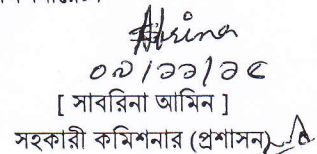 ০৯/১১/১৫
[ সাবরিনা আমিন ]
সহকারী কমিশনার (প্রশাসন)